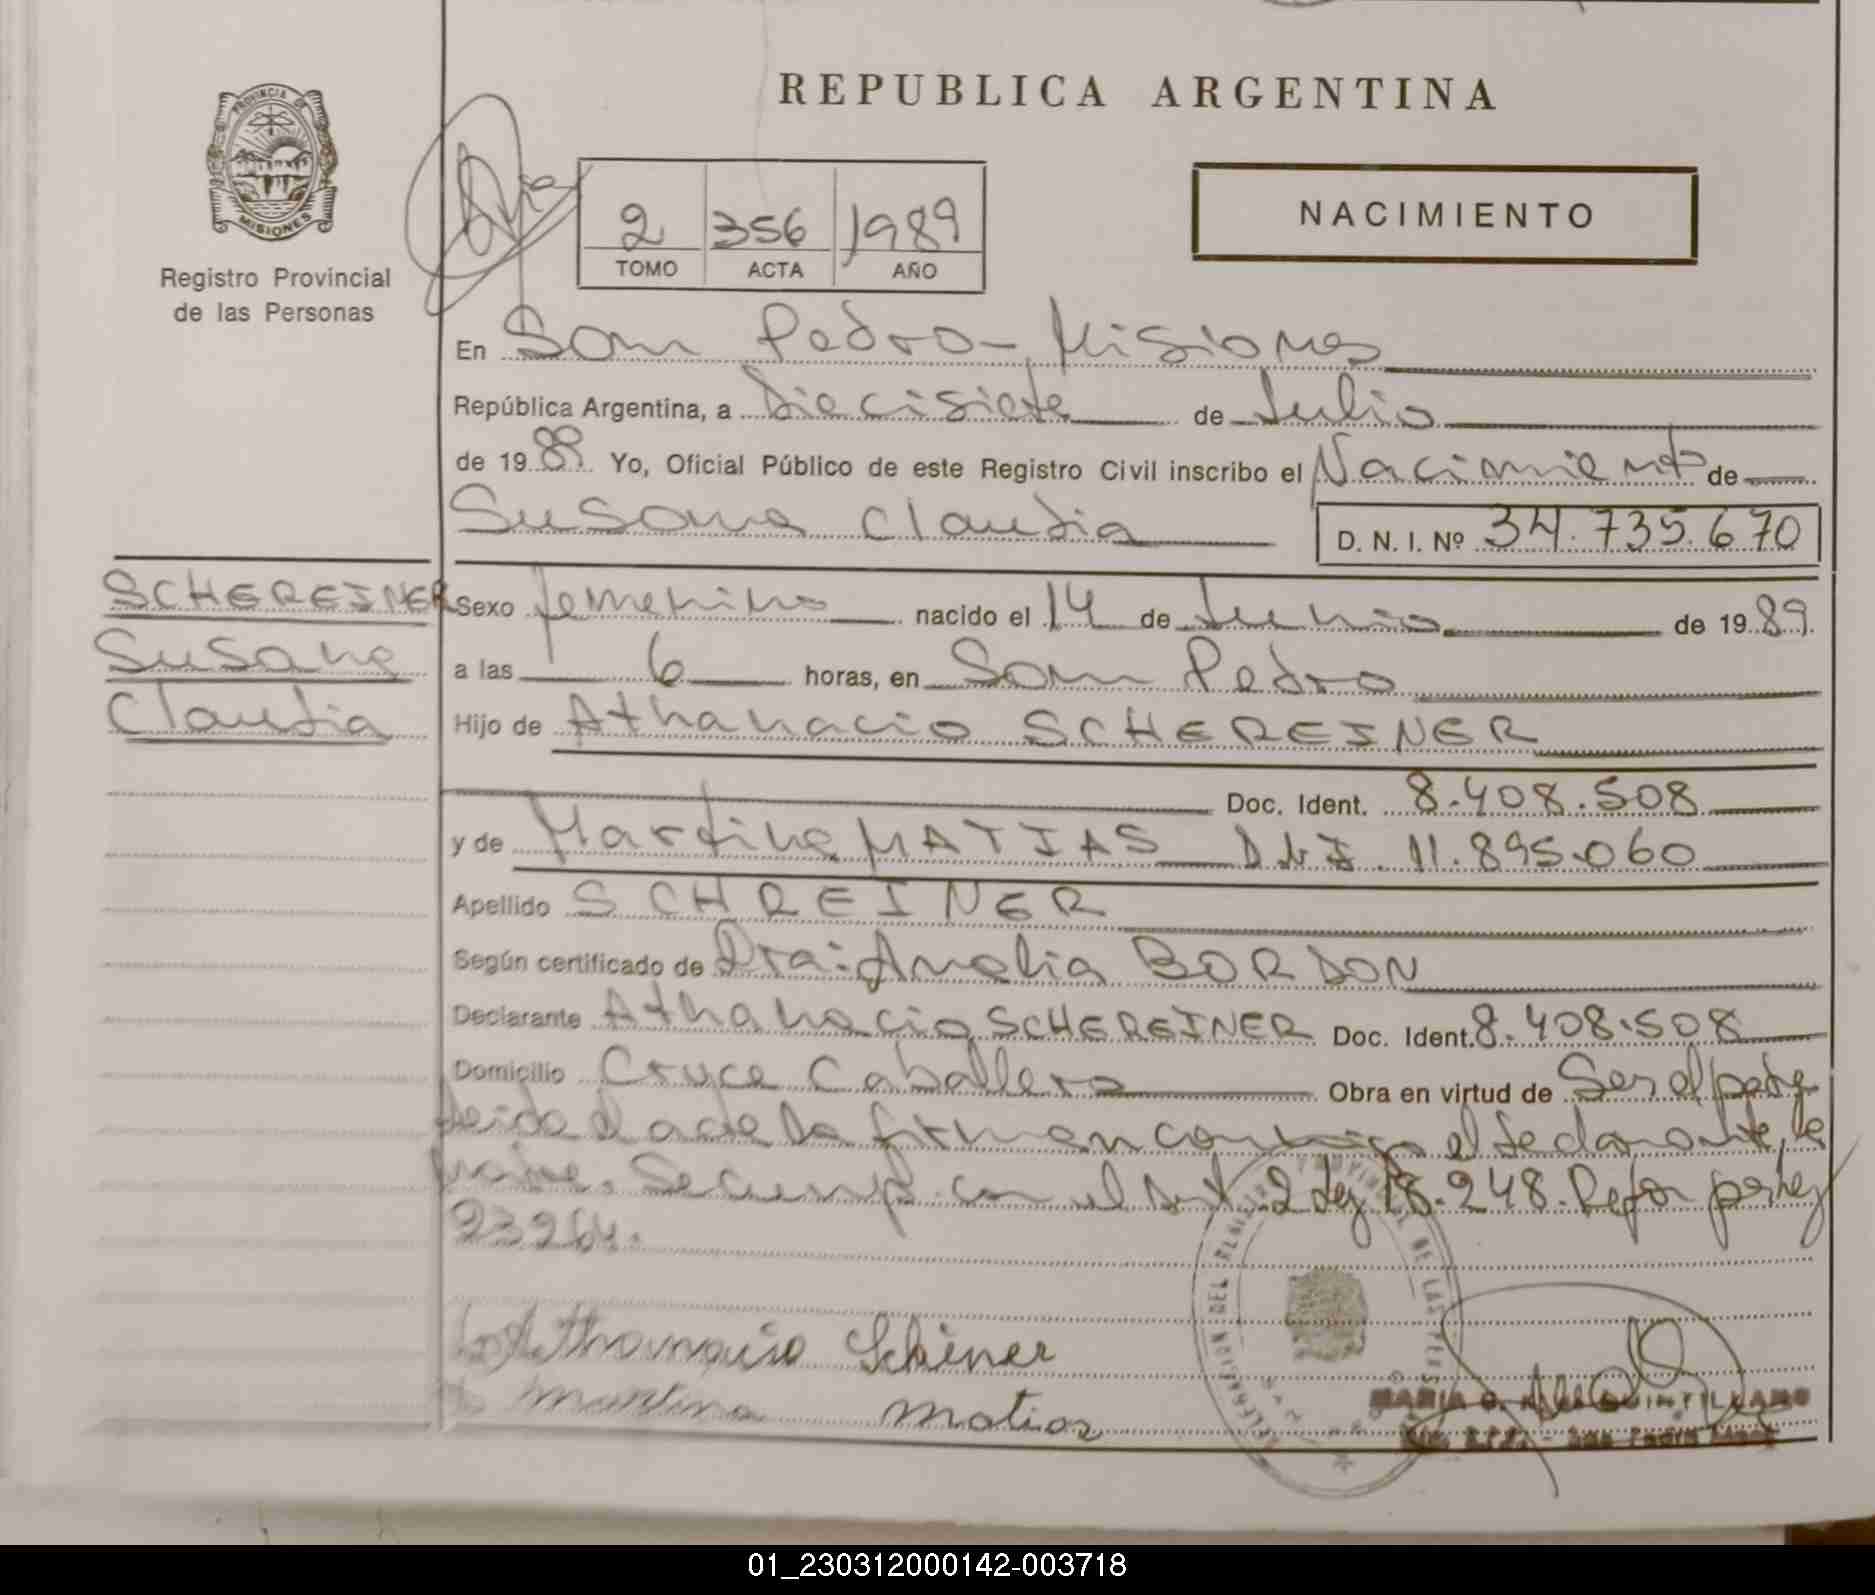 REPUBLICA ARGENTINA
PROVINCIA DE
MISIONES
Registro Provincial
de las Personas
2 356 1989
TOMO ACTA AÑO
NACIMIENTO
En San Pedro - Misiones
República Argentina, a Diecisiete de Julio
de 1989. Yo, Oficial Público de este Registro Civil inscribo el Nacimiento de
Susana Claudia D. N. I. Nº 34.735.670
SCHEREINER
Susana
Claudia
Sexo femenino nacido el 14 de Junio de 1989.
a las 6 horas, en San Pedro
Hijo de Athanacio SCHEREINER
Doc. Ident. 8.408.508
y de Martina MATIAS DNI. 11.895.060
Apellido SCHREINER
Según certificado de Dra: Amalia BORDON
Declarante Athanacio SCHEREINER Doc. Ident. 8.408.508
Domicilio Cruce Caballero Obra en virtud de Ser el padre
leida el acta la firman conmigo el declarante, la
madre. Se cump. con el Art. 2 Ley 18.248. Refor por ley
23264.
Athanacio Schiner
Martina Matias
MARIA G. QUINTILLANO
San Pedro